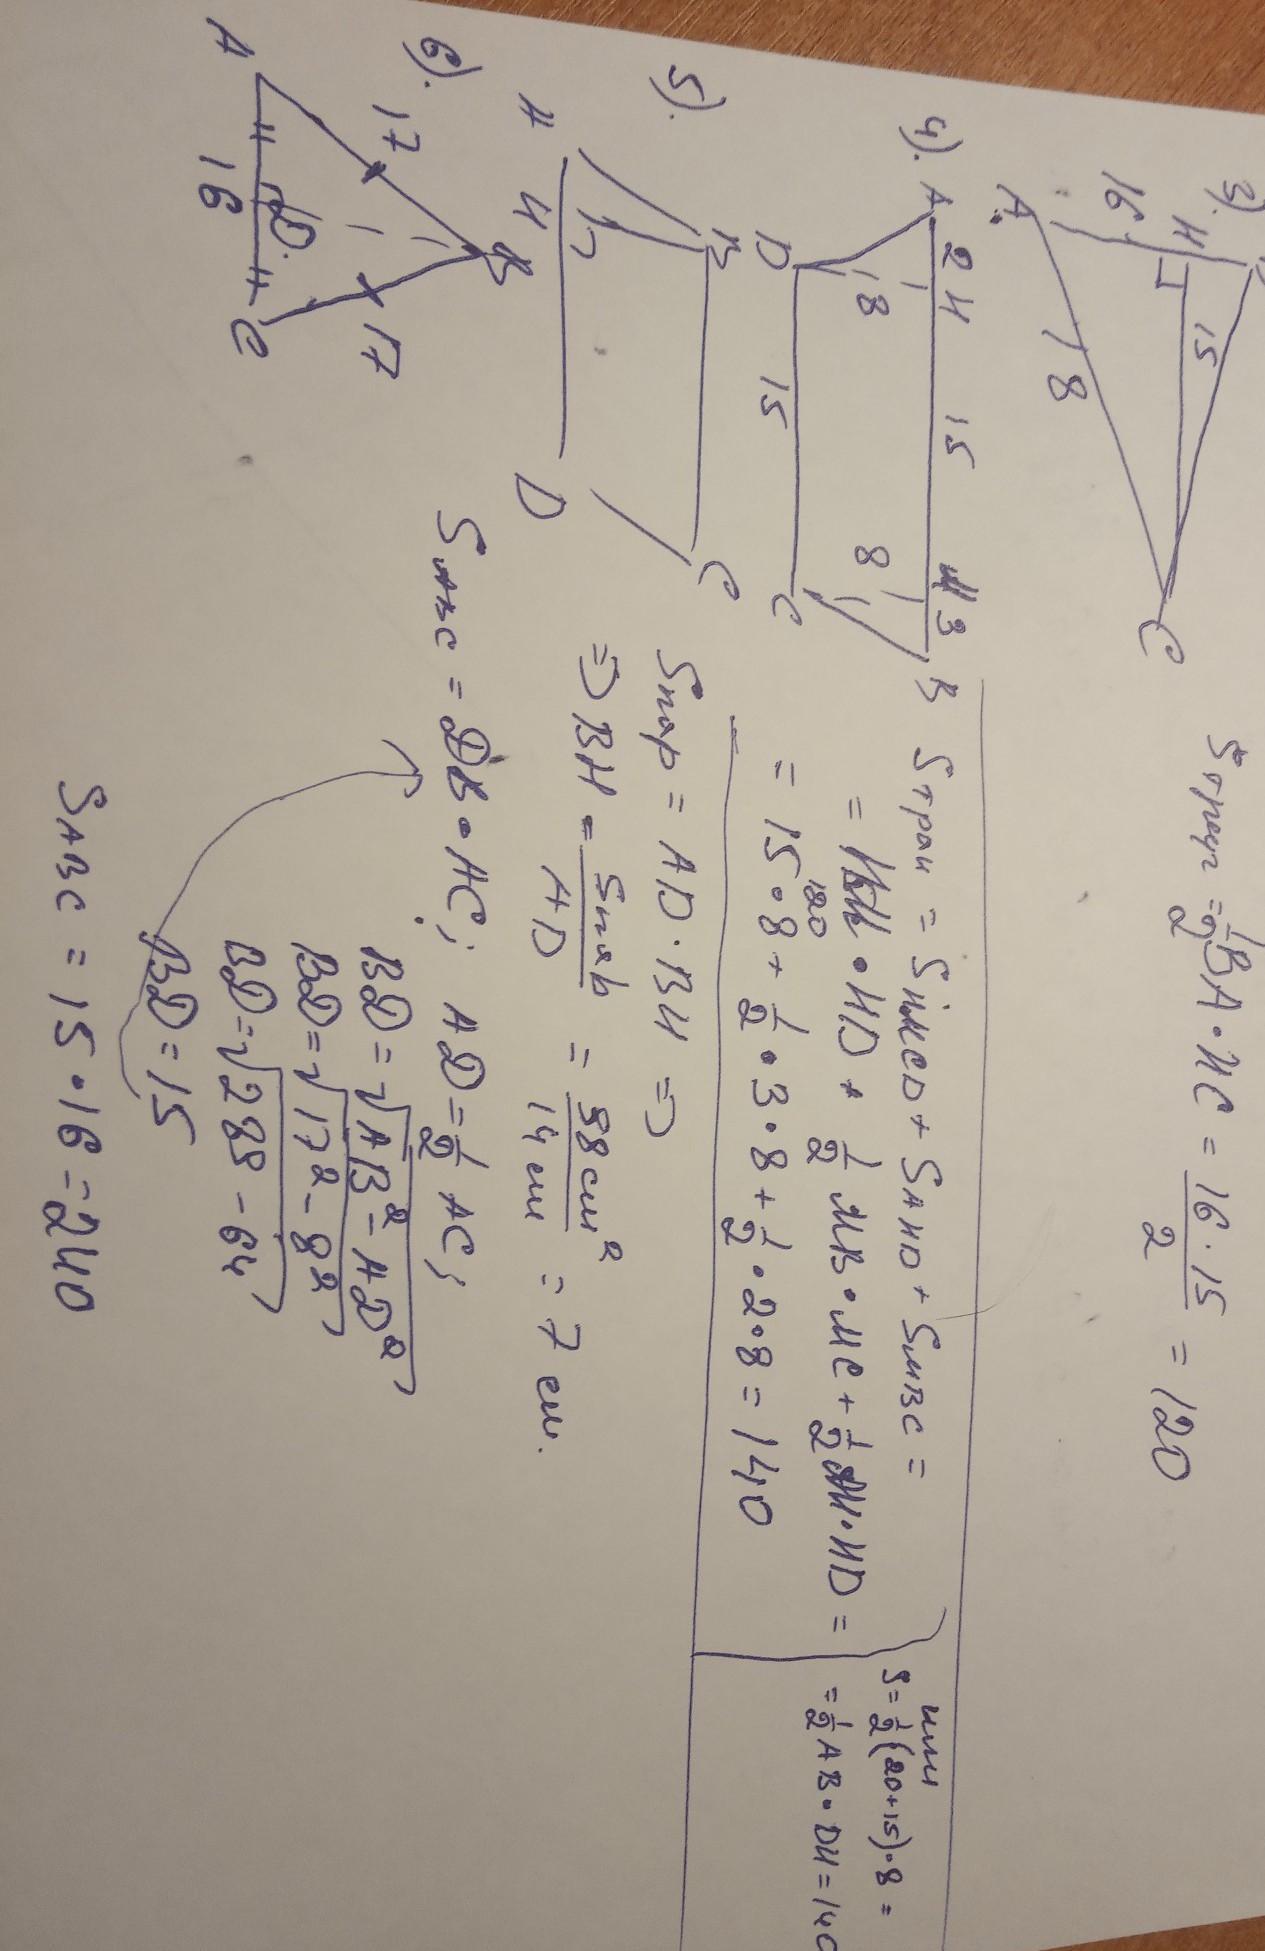 3).
H
15
16
A
18
C
Sтреуг = 1/2 BA · HC = 16 · 15 / 2 = 120
4). A 2 H 15 M 3 B
8 8
D 15 C
Sтрап = SHMCD + SAHD + SMBC =
= HM · HD + 1/2 MB · MC + 1/2 AH · HD =
= 15 · 8 + 1/2 · 3 · 8 + 1/2 · 2 · 8 = 140
120
или
S = 1/2 (20+15) · 8 =
= 1/2 AB · DH = 140
5).
B C
A H D
Sпар = AD · BH =>
=> BH = Sпар / AD = 98 см² / 14 см = 7 см.
6).
B
17 17
A 16 D C
SABC = DB · AC; AD = 1/2 AC;
BD = √AB² - AD²
BD = √17² - 8²
BD = √289 - 64
BD = 15
SABC = 15 · 16 = 240